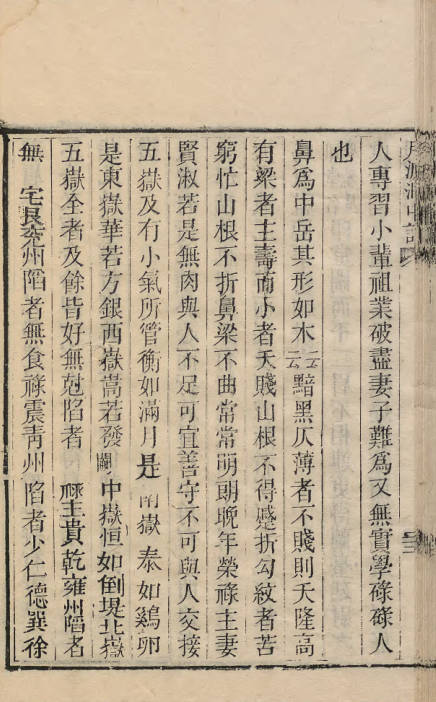 人專習小輩祖業破盡妻子難爲又無實學碌碌人
也
鼻爲中岳其形如木云云黯黑仄薄者不賤則夭隆高
有梁者主壽而小者夭賤山根不得蹙折勾紋者苦
窮忙山根不折鼻梁不曲常常明朗晚年榮祿主妻
賢淑若是無肉與人不足可宜善守不可與人交接
五嶽及有小氣所管衡如滿月是南嶽泰如鷄卵
是東嶽華若方銀西嶽嵩若發中嶽恒如倒堤北嶽
五嶽全者及餘皆好無尅陷者祿主貴乾雍州陷者
無宅艮兖州陷者無食祿震青州陷者少仁德巽徐